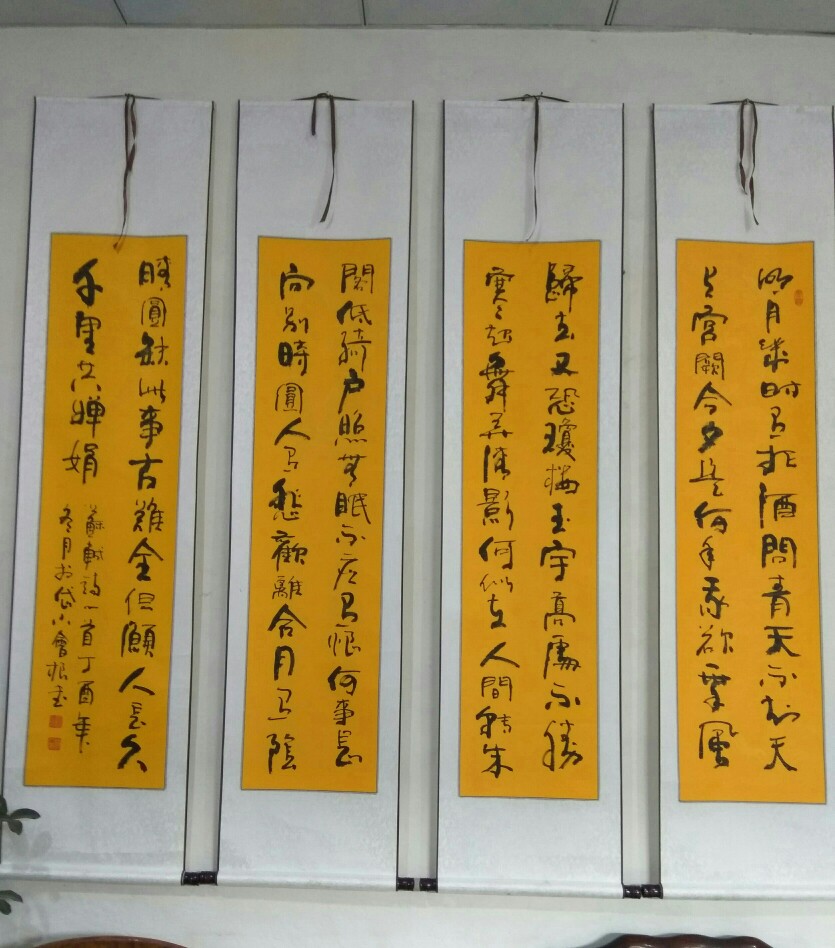 明月幾时有把酒問青天不知天
上宫闕今夕是何年我欲乘風
歸去又恐瓊楼玉宇高處不勝
寒起舞弄清影何似在人間轉朱
閣低綺户照無眠不应有恨何事長
向别時圓人有悲歡離合月有陰
晴圓缺此事古難全但願人長久
千里共嬋娟
蘇軾詞一首丁酉年
冬月於岱會根書